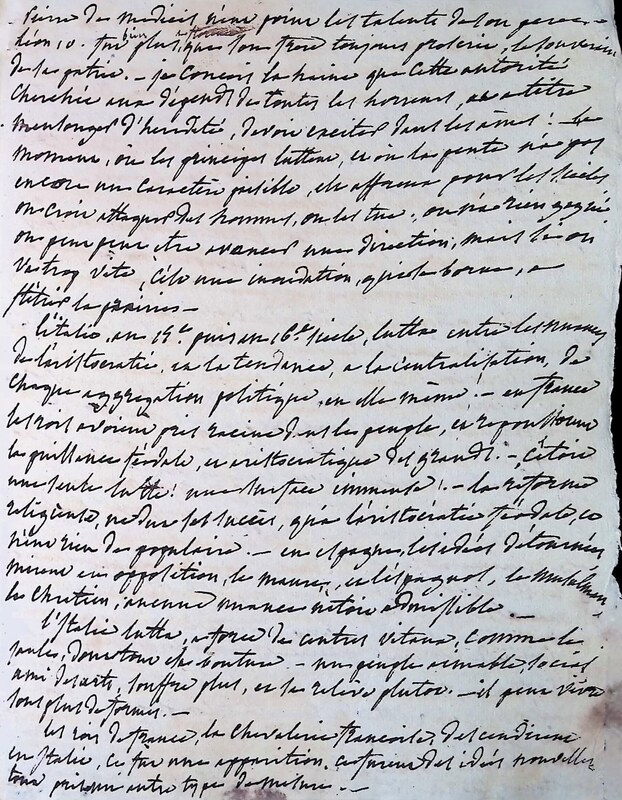 Pierre de medicis, n'eut point les talents de son pere. —
Léon 10. fut bien plus, que son frere toujours proscrit, le souverain
de sa patrie. — je conçois la haine que cette autorité
cherchée aux dépends de toutes les horreurs, au titre
mensonger d'heredité, devoit exciter dans les ames! — Le
moment, où les principes luttent, et où la pente n'a pas
encore un caractère paisible, est affreux pour les siècles
on croit attaquer des hommes, on les tue, on n'a rien gagné
on peut peut etre avancer une direction, mais si on
va trop vite, c'est une inondation, qui se borne, a
flétrir les prairies —
l'italie, au 15e. puis au 16e. siècle, lutta entre les nuances
de l'aristocratie, et la tendance, a la centralisation, de
chaque aggrégation politique, en elle même. — en france
les rois avoient pris racine dans les peuple, et repoussoient
la puissance féodale, et aristocratique des grands. — c'étoit
une seule lutte! une surface immense! — la réforme
religieuse, ne dut ses succès, qu'a l'aristocratie féodale, et
n'eut rien de populaire. — en espagne, les idées détournées
mirent en opposition, le maure, et l'espagnol, le musulman
le chretien, aucune nuance n'étoit admissible —
l'Italie lutta, a force de centres vitaux, comme le
saule, dont tout est bouture — un peuple aimable, social
ami des arts, souffre plus, et se relève plutot. — il peut vivre
sous plus de formes. —
les rois de france, la chevalerie françoise, descendirent
en Italie, ce fut une apparition, ce furent des idées nouvelles
tout prit un autre type de mesure. —